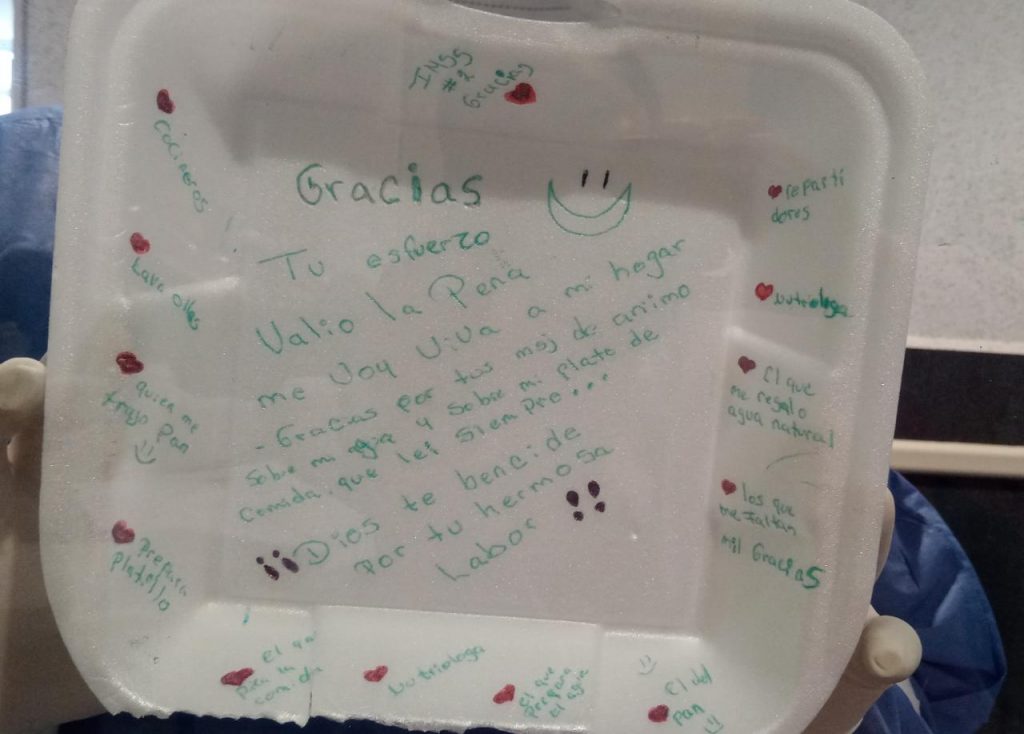 INSS
#2
Gracias
Gracias
Tu esfuerzo
Valio la Pena
me Voy Viva a mi hogar
- Gracias por tus msj de animo
Sobre mi agua y sobre mi plato de
comida, que lei siempre...
¡¡Dios te bencide
Por tu hermosa
Labor !!
Cocineros
Lava ollas
quien me
trajo Pan
Prepara
platillo
El que
Pica la
comida
Nutriologa
El que
prepara
El agua
El del
Pan
reparti
dores
Nutriologa
El que
me regalo
agua natural
los que
me Faltan
mil Gracias